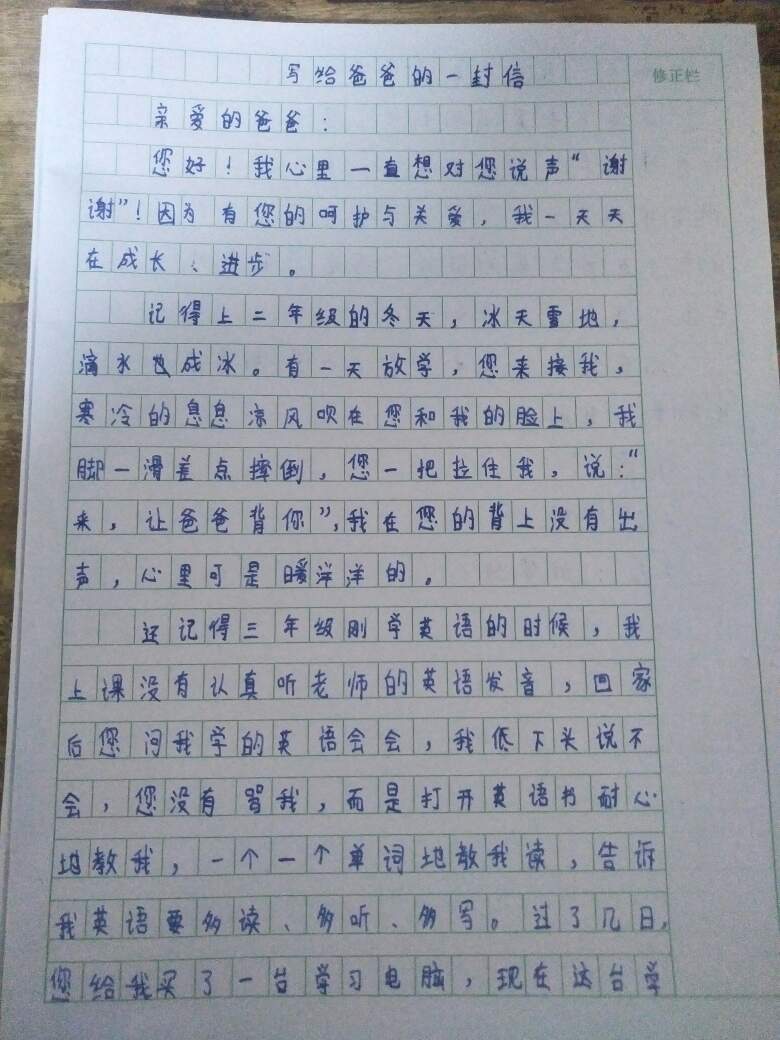 写给爸爸的一封信
修正栏
亲爱的爸爸：
您好！我心里一直想对您说声“谢
谢”！因为有您的呵护与关爱，我一天天
在成长、进步。
记得上二年级的冬天，冰天雪地，
滴水也成冰。有一天放学，您来接我，
寒冷的息息凉风吹在您和我的脸上，我
脚一滑差点摔倒，您一把拉住我，说：“
来，让爸爸背你”，我在您的背上没有出
声，心里可是暖洋洋的。
还记得三年级刚学英语的时候，我
上课没有认真听老师的英语发音，回家
后您问我学的英语会会，我低下头说不
会，您没有骂我，而是打开英语书耐心
地教我，一个一个单词地教我读，告诉
我英语要多读、多听、多写。过了几日，
您给我买了一台学习电脑，现在这台学